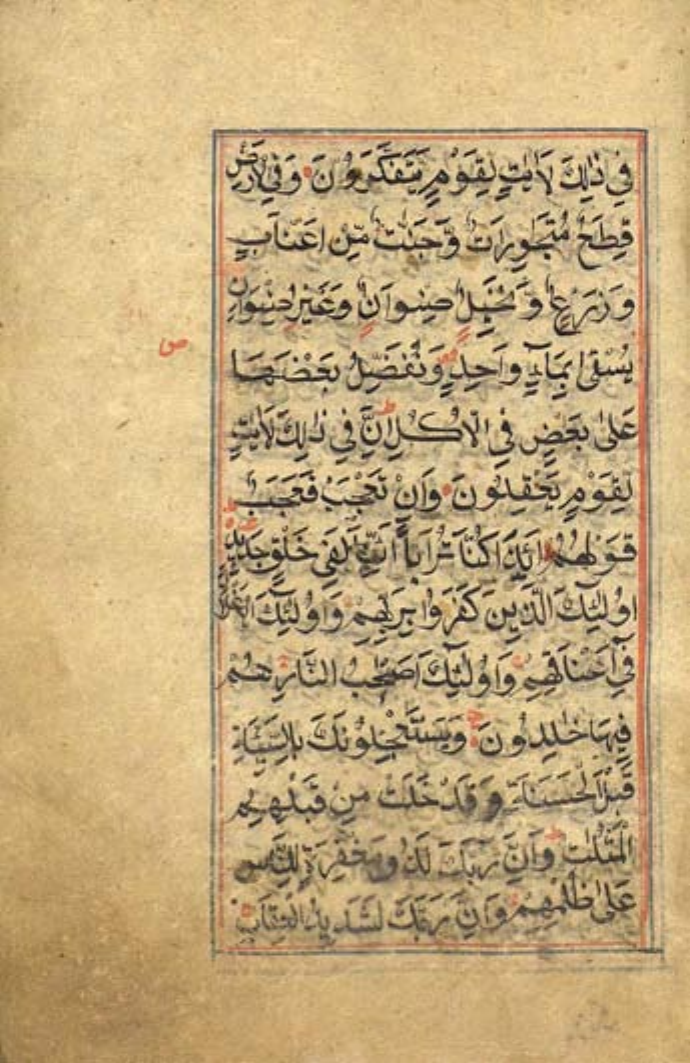 فِي ذٰلِكَ لَاٰيٰتٍ لِقَوْمٍ يَتَفَكَّرُوْنَ وَفِي الْاَرْضِ
قِطَعٌ مُتَجٰوِرَاتٌ وَّجَنّٰتٌ مِّنْ اَعْنَابٍ
وَزَرْعٌ وَّنَخِيْلٌ صِنْوَانٌ وَّغَيْرُ صِنْوَانٍ
يُسْقٰى بِمَآءٍ وَاحِدٍ وَنُفَضِّلُ بَعْضَهَا
عَلٰى بَعْضٍ فِي الْاُكُلِ اِنَّ فِي ذٰلِكَ لَاٰيٰتٍ
لِّقَوْمٍ يَعْقِلُوْنَ وَاِنْ تَعْجَبْ فَعَجَبٌ
قَوْلُهُمْ ءَاِذَا كُنَّا تُرَابًا اَئِنَّا لَفِي خَلْقٍ جَدِيْدٍ
اُولٰئِكَ الَّذِيْنَ كَفَرُوْا بِرَبِّهِمْ وَاُولٰئِكَ الْاَغْلٰلُ
فِيْ اَعْنَاقِهِمْ وَاُولٰئِكَ اَصْحٰبُ النَّارِ هُمْ
فِيْهَا خٰلِدُوْنَ وَيَسْتَعْجِلُوْنَكَ بِالسَّيِّئَةِ
قَبْلَ الْحَسَنَةِ وَقَدْ خَلَتْ مِنْ قَبْلِهِمُ
الْمَثُلٰتُ وَاِنَّ رَبَّكَ لَذُوْ مَغْفِرَةٍ لِلنَّاسِ
عَلٰى ظُلْمِهِمْ وَاِنَّ رَبَّكَ لَشَدِيْدُ الْعِقَابِ
ص